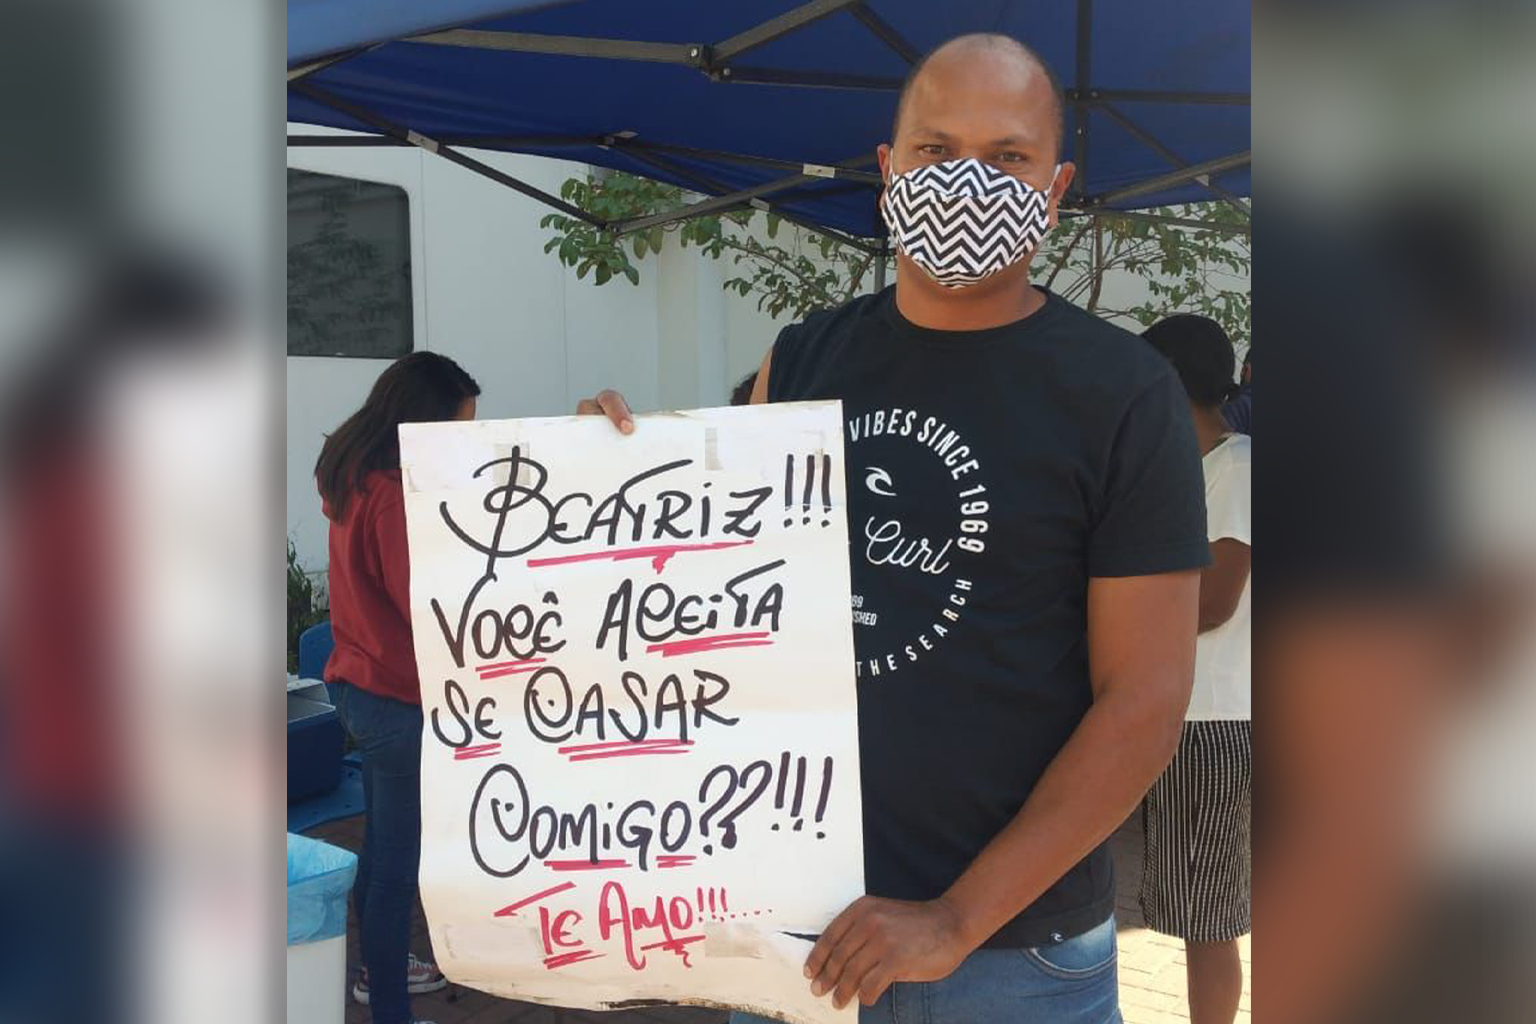 BEATRIZ!!!
VOCÊ ACEITA
SE CASAR
COMIGO??!!!
TE AMO!!!....
VIBES SINCE 1969
Curl
THE SEARCH